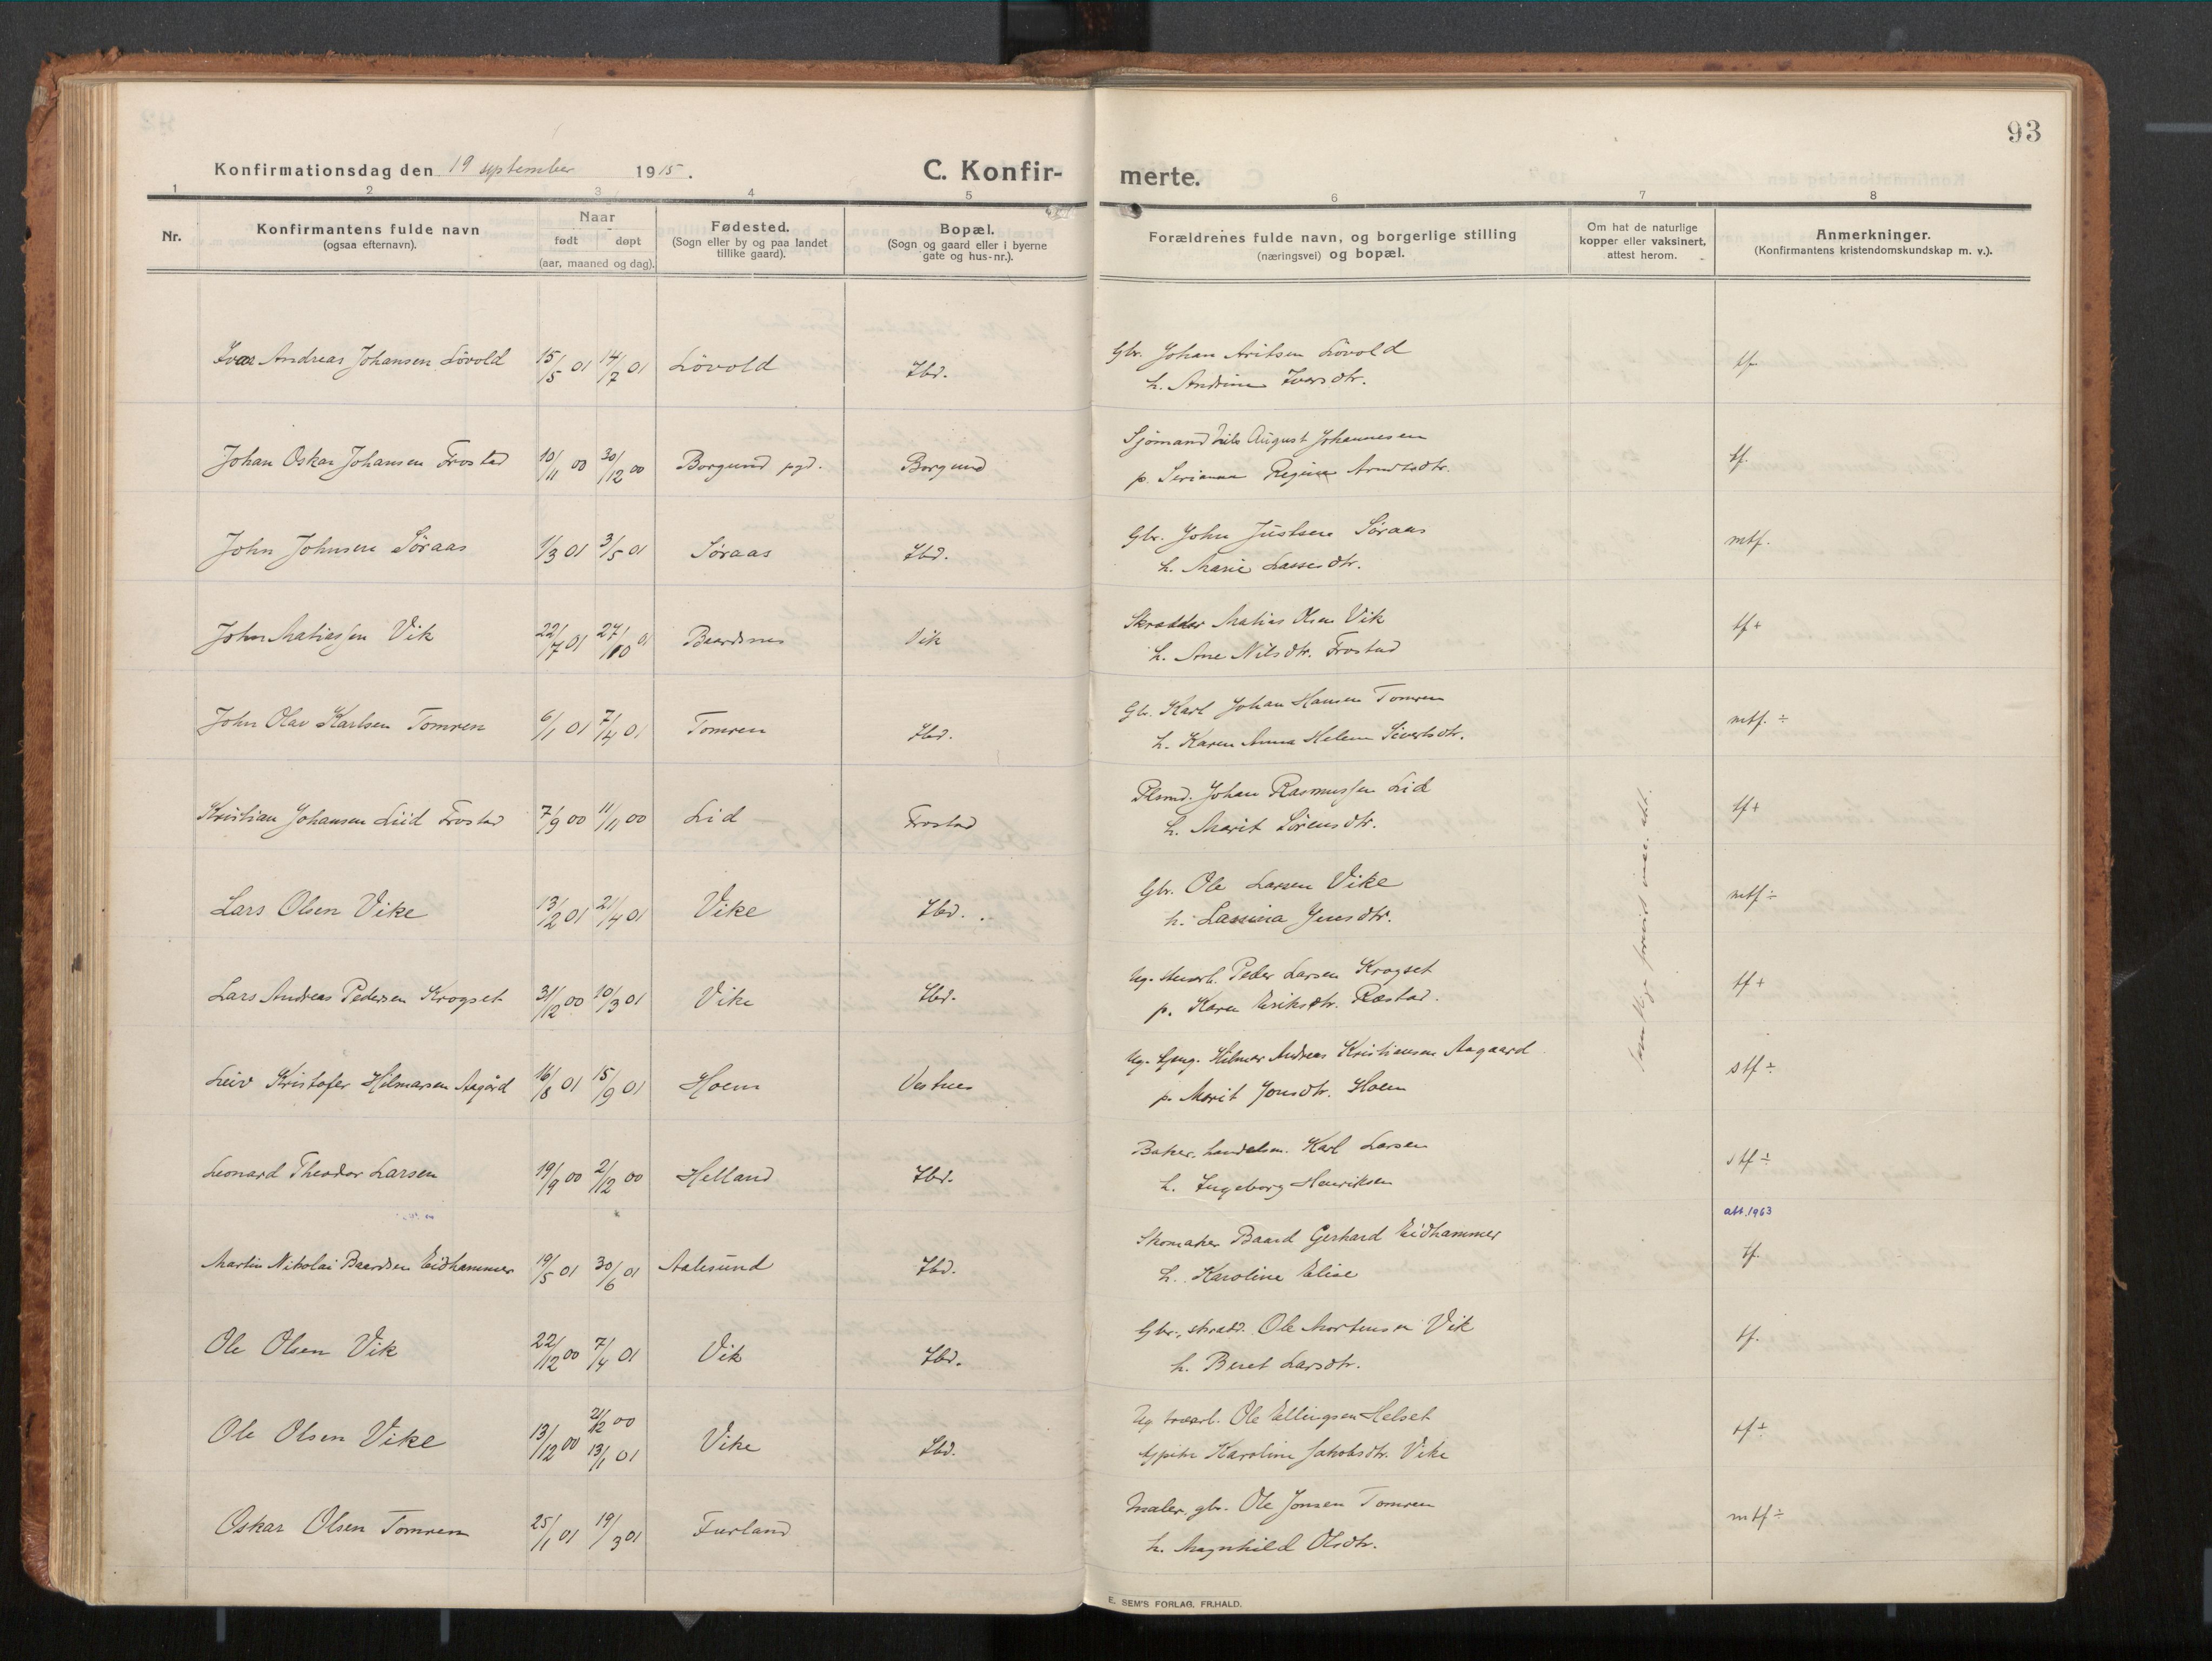 93
Konfirmationsdag den 19 september 1915.
C. Konfirmerte.
1 2 3 4 5 6 7 8
Nr.
Konfirmantens fulde navn
(ogsaa efternavn).
Naar
født døpt
(aar, maaned og dag).
Fødested.
(Sogn eller by og paa landet
tillike gaard).
Bopæl.
(Sogn og gaard eller i byerne
gate og hus-nr.).
Forældrenes fulde navn, og borgerlige stilling
(næringsvei) og bopæl.
Om hat de naturlige
kopper eller vaksinert,
attest herom.
Anmerkninger.
(Konfirmantens kristendomskundskap m. v.).
Ivar Andreas Johansen Lövold 15/5 01 14/7 01 Lövold Ibd.
Gbr. Johan Aritsen Lövold
h. Andrine Iversdtr.
tf.
Johan Oskar Johansen Frostad 10/11 00 30/12 00 Borgund pgd. Borgund
Sjömand Nils August Johannesen
p. Serianna Regine
tf.
John Johnsen Söraas 1/3 01 3/5 01 Söraas Ibd.
Gbr. John Justsen Söraas
h. Marie Lassesdtr.
mtf.
John Matiassen Vik 22/7 01 27/10 01 Baardsnes Vik
Skrædder Matias Olsen Vik
h. Ane Nilsdtr. Frostad
tf+
John Olav Karlsen Tomren 6/1 01 7/4 01 Tomren Ibd.
Gbr. Karl Johan Hansen Tomren
h. Karen Anna Helene Sivertsdtr.
mtf. ÷
Kristian Johansen Liid Frostad 7/9 00 11/11 00 Lid Frostad
Plsmd. Johan Rasmussen Lid
h. Marit Sörensdtr.
tf+
Lars Olsen Vike 13/2 01 21/4 01 Vike Ibd.
Gbr. Ole Larsen Vike
h. Lassina Jensdtr.
mtf ÷
Lars Andreas Pedersen Krogset 31/12 00 10/3 01 Vike Ibd.
Ug. Peder Larsen Krogset
p. Karen Eriksdtr. Ræstad.
tf+
Leiv Kristofer Hilmarsen Aagård 16/8 01 15/9 01 Hoem Vestnes
Ug. Hilmar Andreas Kristiansen Aagaard
p. Marit Jonsdtr. Hoem
stf ÷
Leonard Theodor Larsen 19/9 00 2/12 00 Helland Ibd.
Baker, handelsm. Karl Larsen
h. Ingeborg Henriksen
stf ÷
att. 1963
Martin Nikolai Baardsen Eidhammer 19/5 01 30/6 01 Aalesund Ibd.
Skomaker Baard Gerhard Eidhammer
h. Karoline Elise
tf.
Ole Olsen Vik 22/12 00 7/4 01 Vik Ibd.
Gbr., skrædd. Ole Mortensen Vik
h. Beret Larsdtr.
tf.
Ole Olsen Vike 13/12 00 21/12 00 13/1 01 Vike Ibd.
Ug. Ole Ellingsen Helset
Karoline Jakobsdtr. Vike
tf ÷
Oskar Olsen Tomren 25/1 01 19/3 01 Furland
Maler, gbr. Ole Jonsen Tomren
h. Magnhild Olsdtr.
mtf ÷
E. SEM'S FORLAG, FR.HALD.